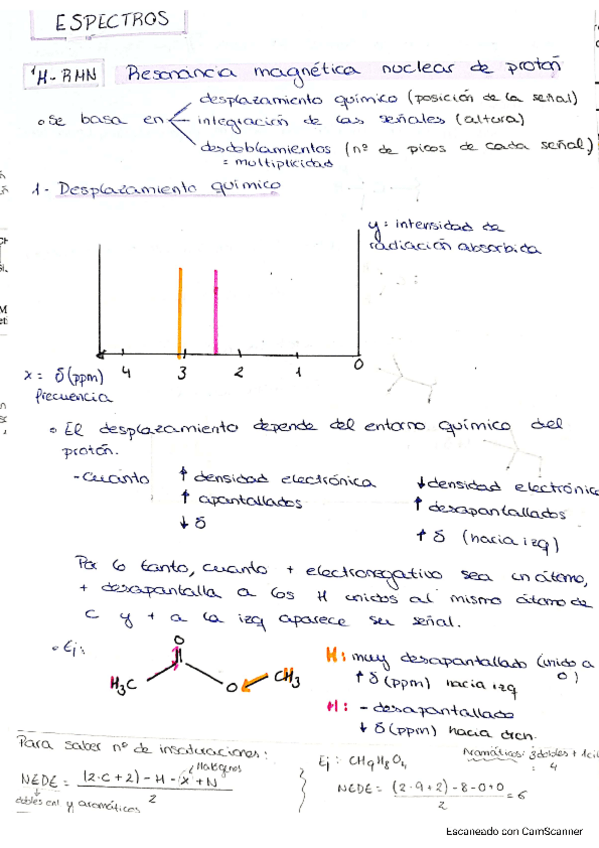 ESPECTROS
¹H-RMN Resonancia magnética nuclear de protón
desplazamiento químico (posición de la señal)
• Se basa en integración de las señales (altura)
desdoblamientos (nº de picos de cada señal)
= multiplicidad
1- Desplazamiento químico
y = intensidad de
radiación absorbida
x = δ (ppm) 4 3 2 1 0
frecuencia
• El desplazamiento depende del entorno químico del
protón.
- Cuanto ↑ densidad electrónica ↓ densidad electrónica
↑ apantallados ↑ desapantallados
↓ δ ↑ δ (hacia izq)
Por lo tanto, cuanto + electronegativo sea un átomo,
+ desapantalla a los H unidos al mismo átomo de
C y + a la izq aparece su señal.
• Ej:
O
H₃C O CH₃
H: muy desapantallado (unido a O)
↑ δ (ppm) hacia izq
H: - desapantallado
↓ δ (ppm) hacia drch.
Para saber nº de insaturaciones:
Halógenos
NEDE = (2·C + 2) - H - X + N / 2
dobles enl y aromáticos
Ej: CH9H8O4
NEDE = (2·9+2) - 8 - 0 + 0 / 2 = 6
Aromáticos: 3 dobles + 1
= 4
Escaneado con CamScanner